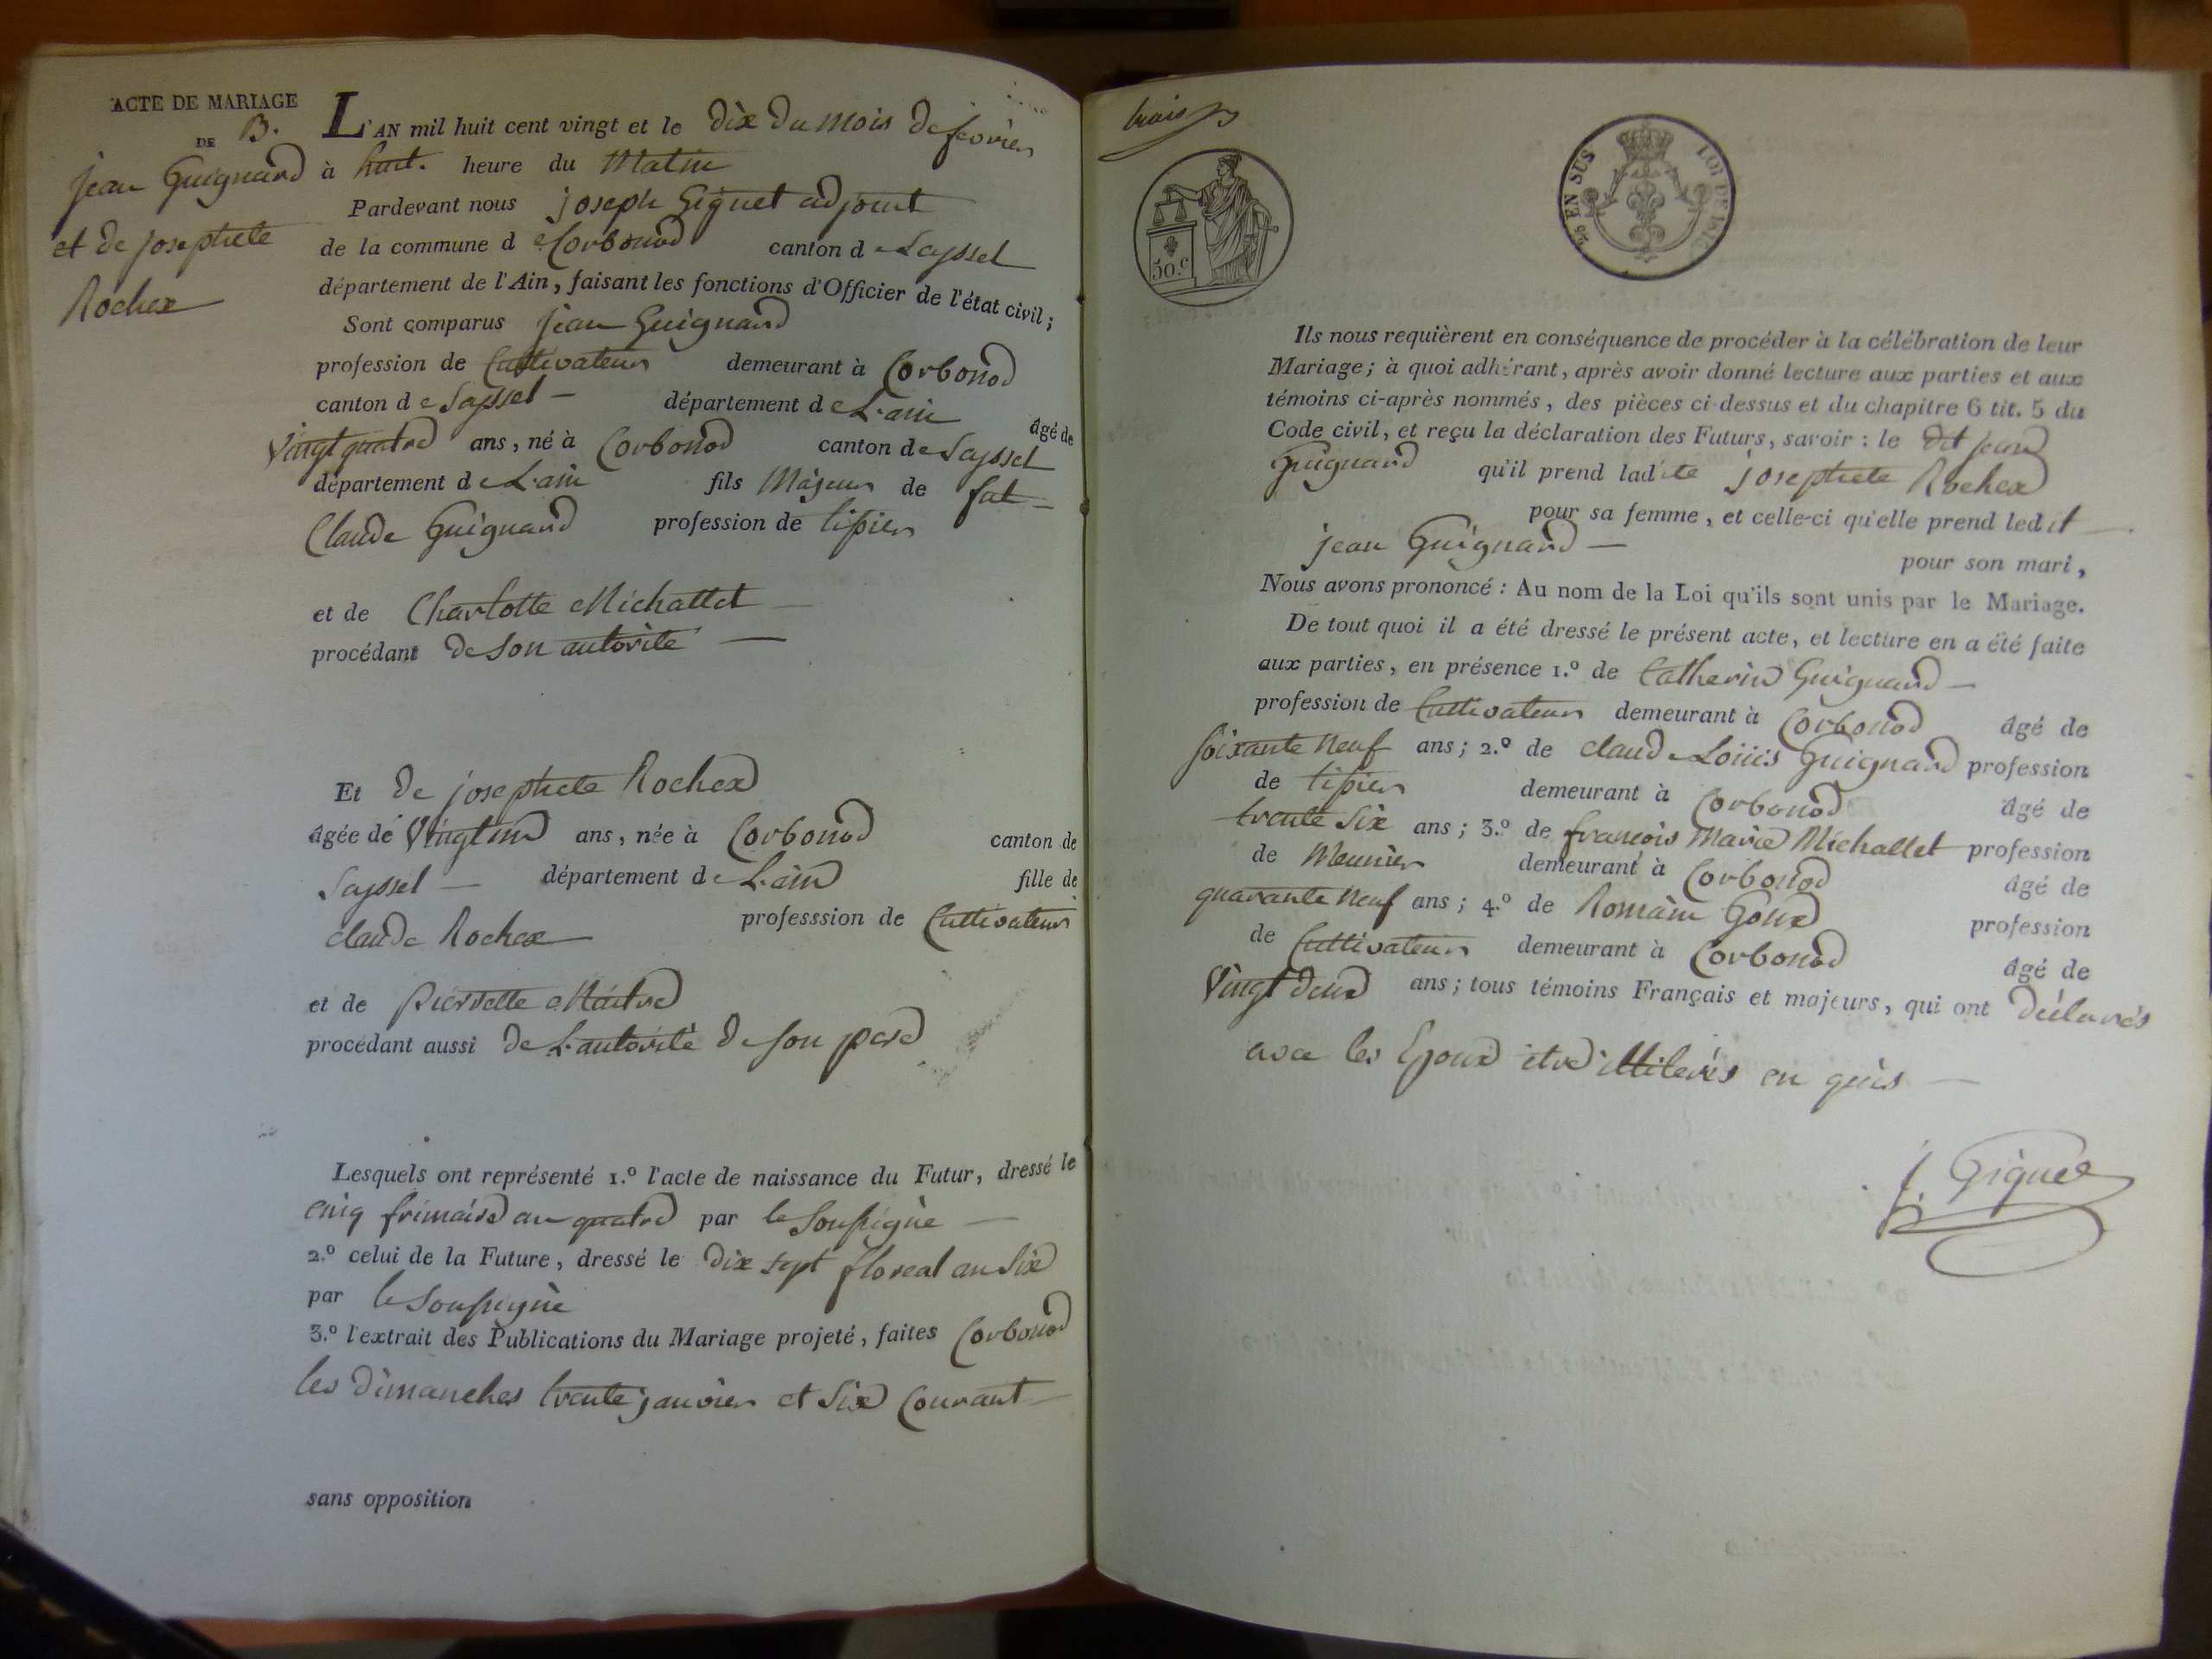 ACTE DE MARIAGE
B.
DE
jean Guignard
et de josephete
Rochex
L'AN mil huit cent vingt et le dix du mois de fevrier
à huit. heure du Matin
Pardevant nous joseph Giguet adjoint
de la commune de Corbonod canton de Seyssel
département de l'Ain, faisant les fonctions d'Officier de l'état civil;
Sont comparus jean Guignard
profession de Cultivateur demeurant à Corbonod
canton de Seyssel — département de L'ain âgé de
Vingt quatre ans, né à Corbonod canton de Seyssel
département de L'ain fils Majeur de
Claude Guignard profession de tissier
et de Charlotte Michallet —
procédant de son autorité —
Et de josephete Rochex
âgée de Vingt un ans, née à Corbonod canton de
Seyssel — département de L'ain fille de
claude Rochex professsion de Cultivateur
et de pierrette Maitre
procédant aussi de L'autorité de son pere
Lesquels ont représenté 1.º l'acte de naissance du Futur, dressé le
cinq frimaire an quatre par le Soussigné —
2.º celui de la Future, dressé le dix sept floreal an Six
par le Soussigné
3.º l'extrait des Publications du Mariage projeté, faites Corbonod
les dimanches trente janvier et Six Courant —
sans opposition
trois
50.c
25 EN SUS
LOI DE 1816
Ils nous requièrent en conséquence de procéder à la célébration de leur
Mariage; à quoi adhérant, après avoir donné lecture aux parties et aux
témoins ci-après nommés, des pièces ci-dessus et du chapitre 6 tit. 5 du
Code civil, et reçu la déclaration des Futurs, savoir: le dit jean
Guignard qu'il prend ladite josephete Rochex
pour sa femme, et celle-ci qu'elle prend ledit —
jean Guignard — pour son mari,
Nous avons prononcé: Au nom de la Loi qu'ils sont unis par le Mariage.
De tout quoi il a été dressé le présent acte, et lecture en a été faite
aux parties, en présence 1.º de Catherin Guignard —
profession de Cultivateur demeurant à Corbonod âgé de
soixante Neuf ans; 2.º de claude Louis Guignard profession
de tissier demeurant à Corbonod âgé de
trente Six ans; 3.º de françois Marie Michallet profession
de Meunier demeurant à Corbonod âgé de
quarante Neuf ans; 4.º de Romain Goux profession
de Cultivateur demeurant à Corbonod âgé de
Vingt deux ans; tous témoins Français et majeurs, qui ont déclarés
avec les Epoux etre illiterés en quis —
J. Giguet